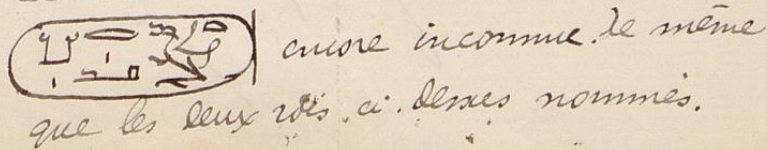 encore inconnue. le même
que les deux rois ci-dessus nommés.